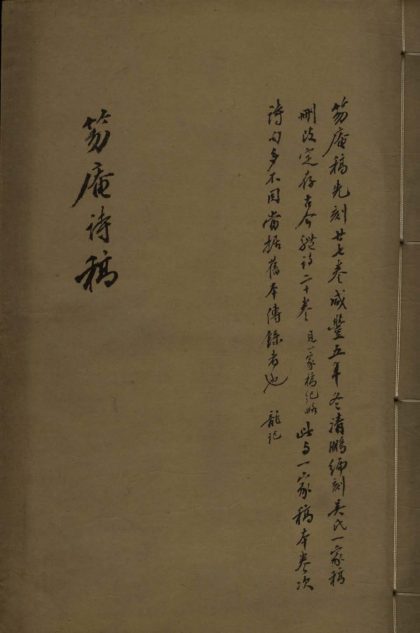 笏庵稿先刻廿七卷咸豐五年冬清鵬編刻吳氏一家稿
刪改定存古今體詩二十卷見一家稿紀略此与一家稿本卷次
詩句多不同當據舊本傳錄者也 龍記
笏庵詩稿